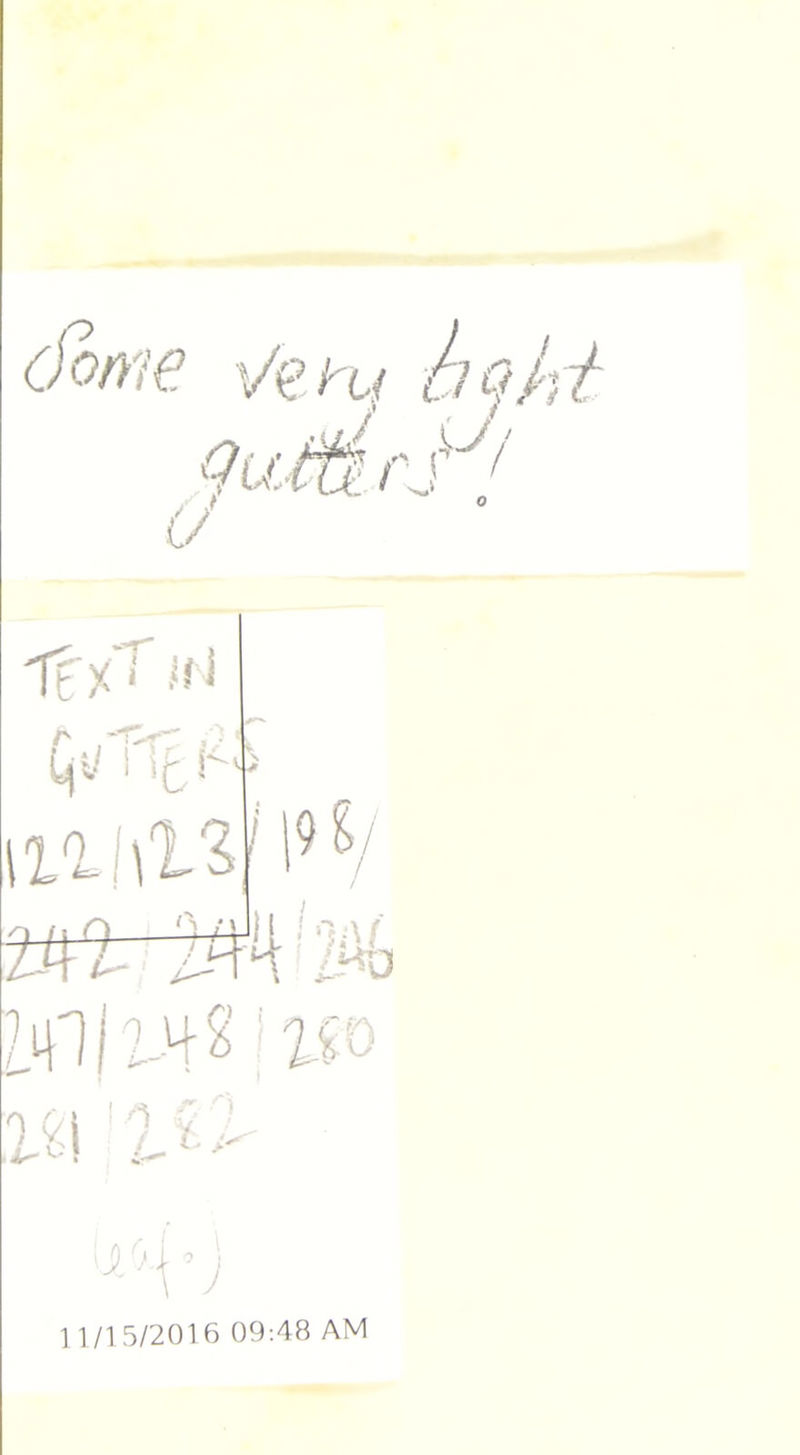 Some very tight
gutters!
TEXT IN
GUTTERS
122/123/198/
242/244/246
247/248/280
281/282
(leaf.)
11/15/2016 09:48 AM